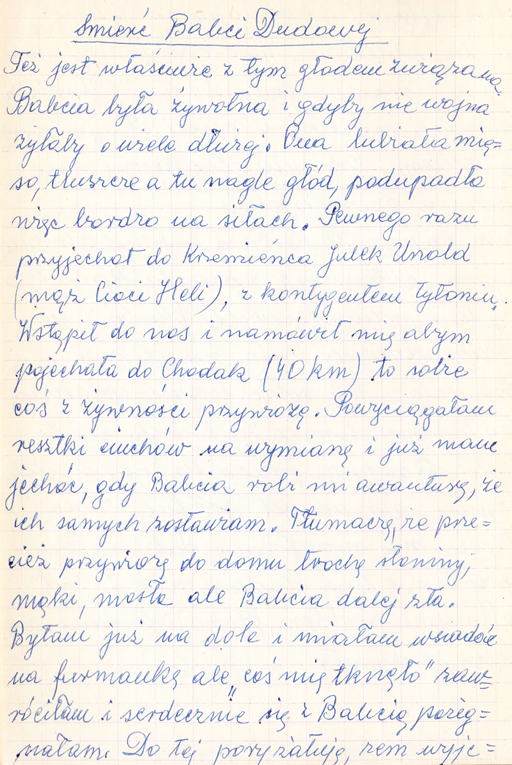 Śmierć Babci Dudowej
Też jest właściwie z tym głodem związana.
Babcia była żywotna i gdyby nie wojna
żyłaby o wiele dłużej. Ona lubiała mię=
so, tłuszcze a tu nagle głód, podupadła
więc bardzo na siłach. Pewnego razu
przyjechał do Krzemieńca Julek Unold
(mąż Cioci Heli), z kontygentem tytoniu.
Wstąpił do nas i namówił mię abym
pojechała do Chodak (40 km) to sobie
coś z żywności przywiozę. Powyciągałam
resztki ciuchów na wymianę i już mam
jechać, gdy Babcia robi mi awanturę, że
ich samych zostawiam. Tłumaczę, że prze=
cież przywiozę do domu trochę słoniny,
mąki, masła ale Babcia dalej zła.
Byłam już na dole i miałam wsiadać
na furmankę ale „coś mię tknęło" zaw=
róciłam i serdecznie się z Babcią pożeg=
nałam. Do tej pory żałuję, żem wyje=